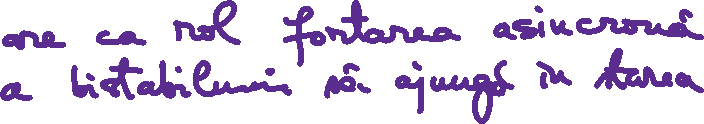 are ca rol forțarea asincronă
a bistabilului să ajungă în starea